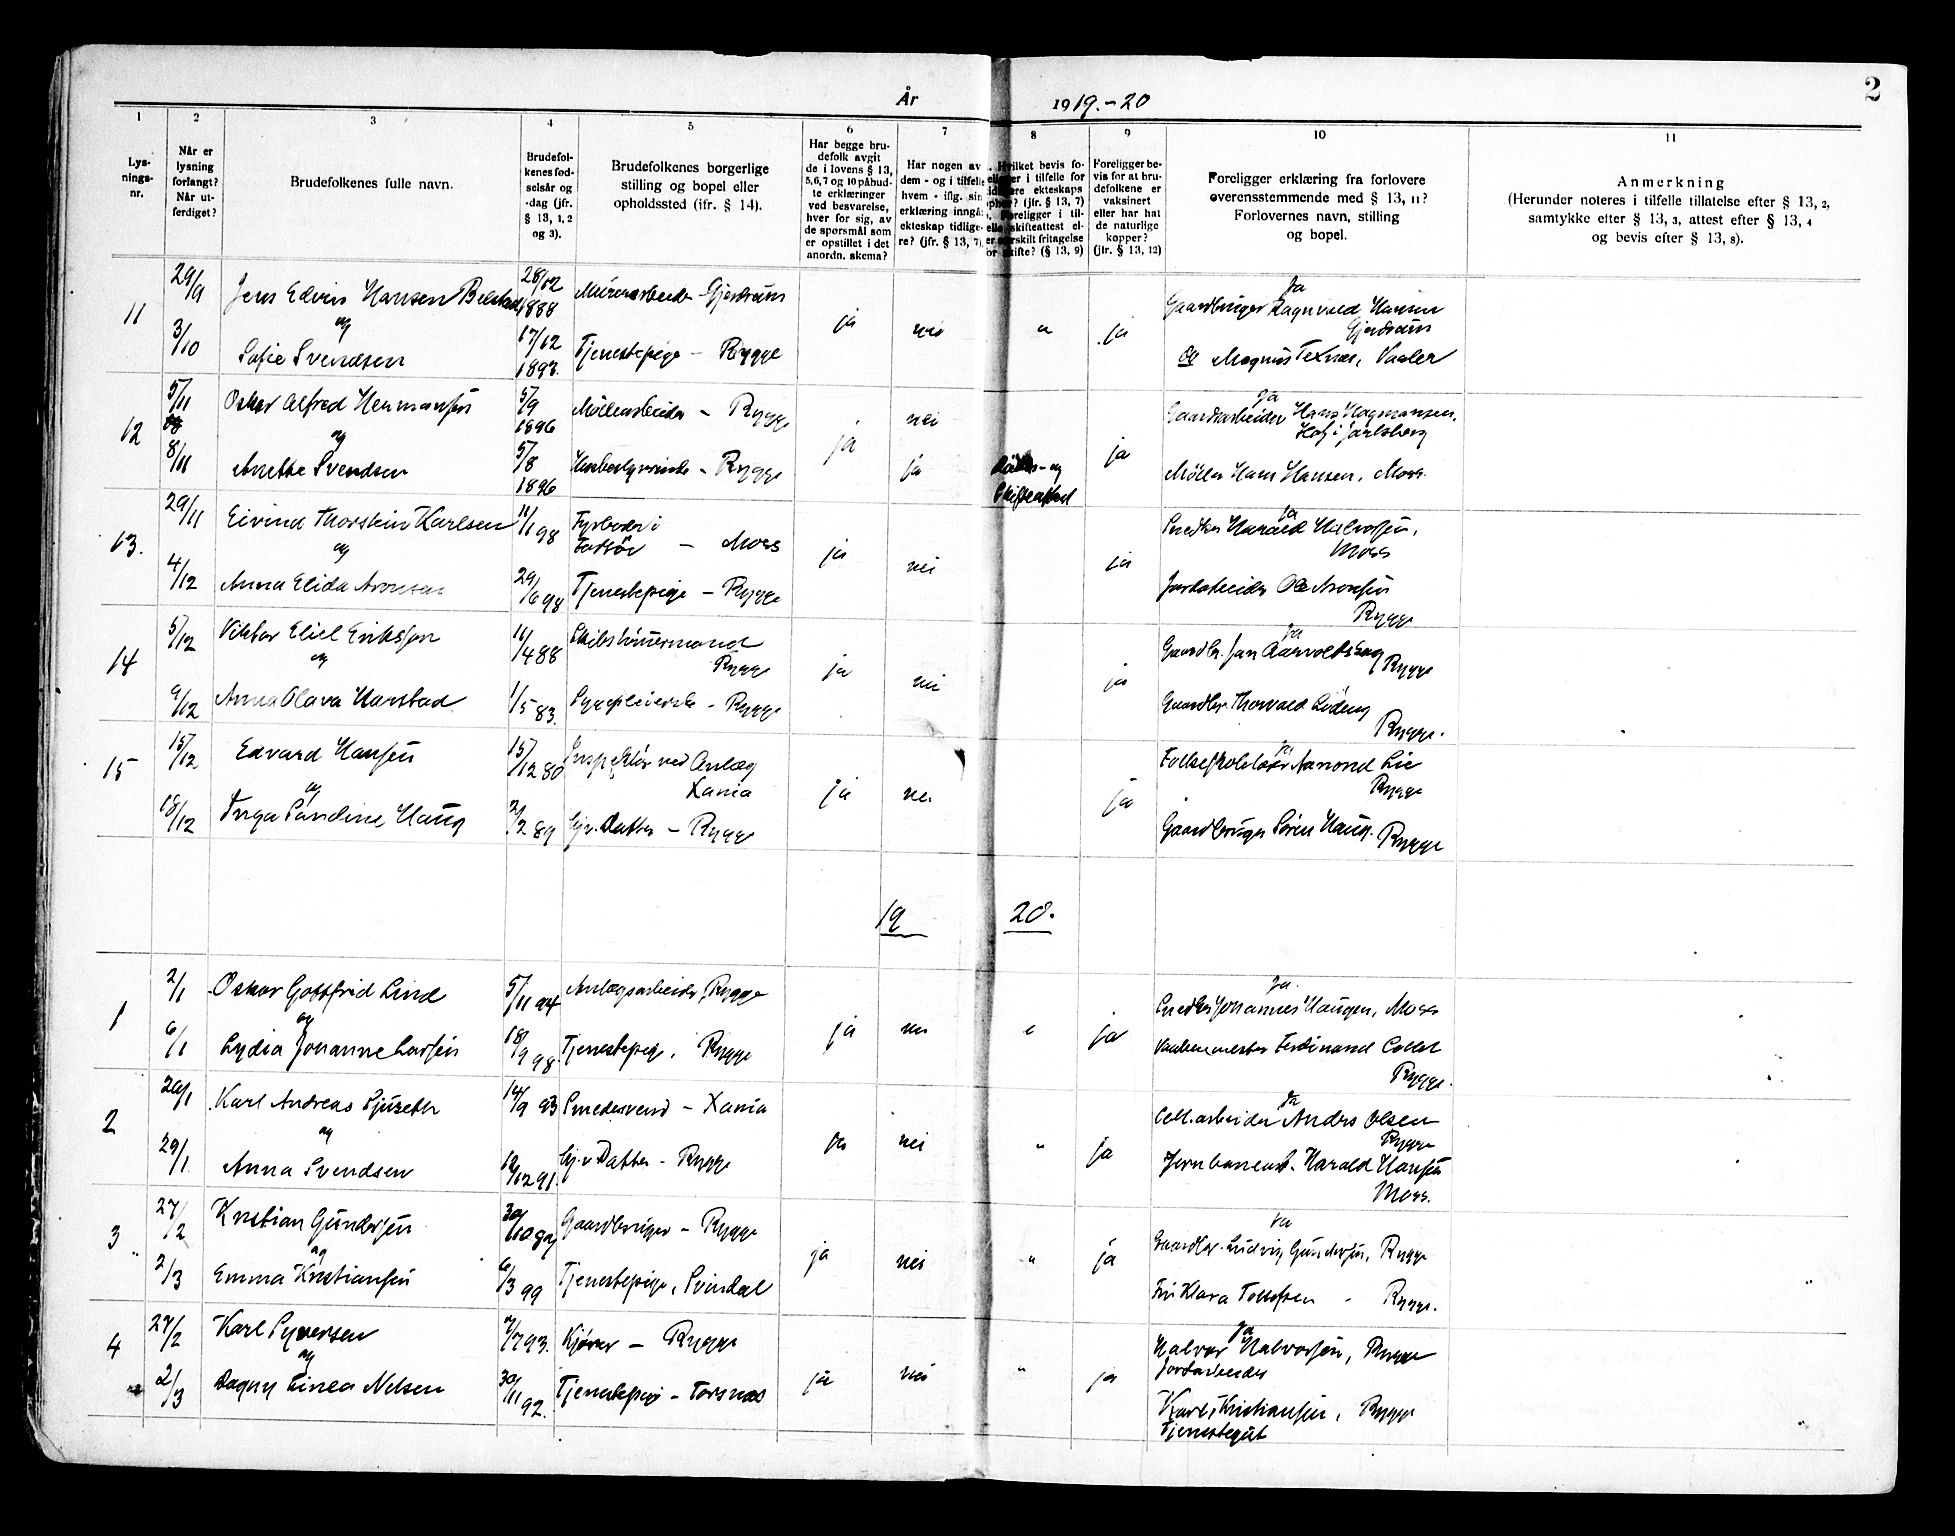 2
År 1919.-20
1
2
3
4
5
6
7
8
9
10
11
Lys-
nings-
nr.
Når er
lysning
forlangt?
Når ut-
ferdiget?
Brudefolkenes fulle navn.
Brudefol-
kenes fød-
selsår og
-dag (jfr.
§ 13, 1, 2
og 3).
Brudefolkenes borgerlige
stilling og bopel eller
opholdssted (ifr. § 14).
Har begge bru-
defolk avgit
de i lovens § 13,
5, 6, 7 og 10 påbud-
te erklæringer
ved besvarelse,
hver for sig, av
de spørsmål som
er opstillet i det
anordn. skema?
Har nogen av
dem - og i tilfelle
hvem - iflg. sin
erklæring inngå
ekteskap tidlige-
re? (jfr. § 13, 7).
Hvilket bevis fo-
i tilfelle for
ekteskaps
(jfr. § 13, 7)
Foreligger i til-
skifteattest el-
fritagelse
skifte? (§ 13, 9)
Foreligger be-
vis for at bru-
defolkene er
vaksinert
eller har hat
de naturlige
kopper?
(jfr. § 13, 12)
Foreligger erklæring fra forlovere
overensstemmende med § 13, 11?
Forlovernes navn, stilling
og bopel.
Anmerkning
(Herunder noteres i tilfelle tillatelse efter § 13, 2,
samtykke efter § 13, 3, attest efter § 13, 4
og bevis efter § 13, 8).
11
29/9
Jens Edvin Hansen
28/12
1888
Gjerdrum
og
3/10
Sofie Svendsen
17/12
1893.
Tjenestepige - Rygge
ja
nei
"
ja
Ja
Gaardbruger Ragnvald Hansen
Gjerdrum
og Magnus Texnæs, Vaaler
12
5/11
Oskar Alfred Hermansen
5/9
1896
Møllearbeider - Rygge
og
8/11
Anette Svendsen
5/8
1896
Rygge
ja
nei
ja
og
Skifteattest
ja
Ja
Gaardsarbeider Hans
Hof i Jarlsberg
Møller Hans Hansen, Moss.
13.
29/11
Eivind Thorstein Karlsen
11/1 98
Fyrbøder i
- Moss
og
4/12
Anna Elida Aronsen
29/6 98
Tjenestepige - Rygge
ja
nei
ja
Ja
Snedker Harald Halvorsen,
Moss
Jordarbeider Ole Aronsen
Rygge
14
5/12
Viktor Eliel Eriksson
11/4 88
Skibstømmermand
Rygge
og
9/12
Anna Olava Harstad
1/5 83.
Sygepleierske - Rygge
ja
nei
ja
Ja
Gaardbr. Jan
Rygge
Gaardbr. Thorvald
Rygge.
15
15/12
Edvard Hansen
15/12 80
Inspektør ved Anlæg
Xania
og
18/12
Inga Pauline Haug
2/2 89
Gj. Datter - Rygge
ja
nei
ja
ja
Folkeskolelærer Aanond Lie
Rygge
Gaardbruger Søren Haug. Rygge
19 20.
1
2/1
Oskar Gottfrid Lind
5/11 94
Anlægsarbeider, Rygge
og
6/1
Lydia Johanne Larsen
18/9 98.
Tjenestepige, Rygge
ja
nei
ja
Ja.
Snedker Johannes Haugen, Moss
Ferdinand
Rygge.
2
Karl Andreas
14/9 93
Smedesvend - Xania
og
29/1
Anna Svendsen
Gj. Datter - Rygge
nei
"
ja
Ja
Cell.arbeider Andrs Olsen
Rygge
Harald Hansen
Moss.
3
27/2
Kristian Gundersen
Gaardbruger - Rygge
og
2/3
Emma Kristiansen
6/3 99
Tjenestepige, Svindal
ja
nei
"
ja
Ja
Gaardbr. Ludvig Gundersen, Rygge
Klara Tollefsen - Rygge.
4
27/2
Karl Syversen
7/7 93.
Kjører - Rygge
og
2/3
Dagny Linea Nelsen
30/11 92.
Tjenestepige - Torsnæs
ja
nei
"
ja
Ja
Halvor Halvorsen, Rygge
Jordarbeider
Karl Kristiansen, Rygge
Tjenestegut